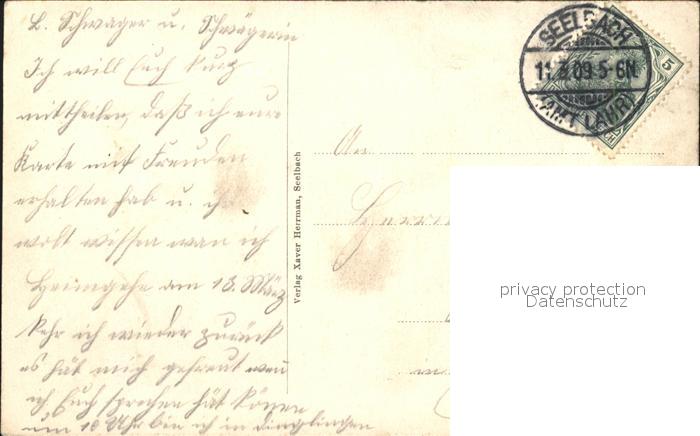 L. Schwager u. Schwägerin
Ich will Euch kurz
mittheilen, daß ich eure
Karte mit Freuden
erhalten hab u. ihr
wolt wissen wan ich
Heimgehe am 13. März
kehr ich wieder zurück
es hät mich gefreut wen
ich Euch sprechen hät könen
um 10 Uhr bin ich in Dinglingen
Verlag Xaver Herrman, Seelbach
SEELBACH
11.3.09.5-6N.
(AMT LAHR)
5
An
privacy protection
Datenschutz